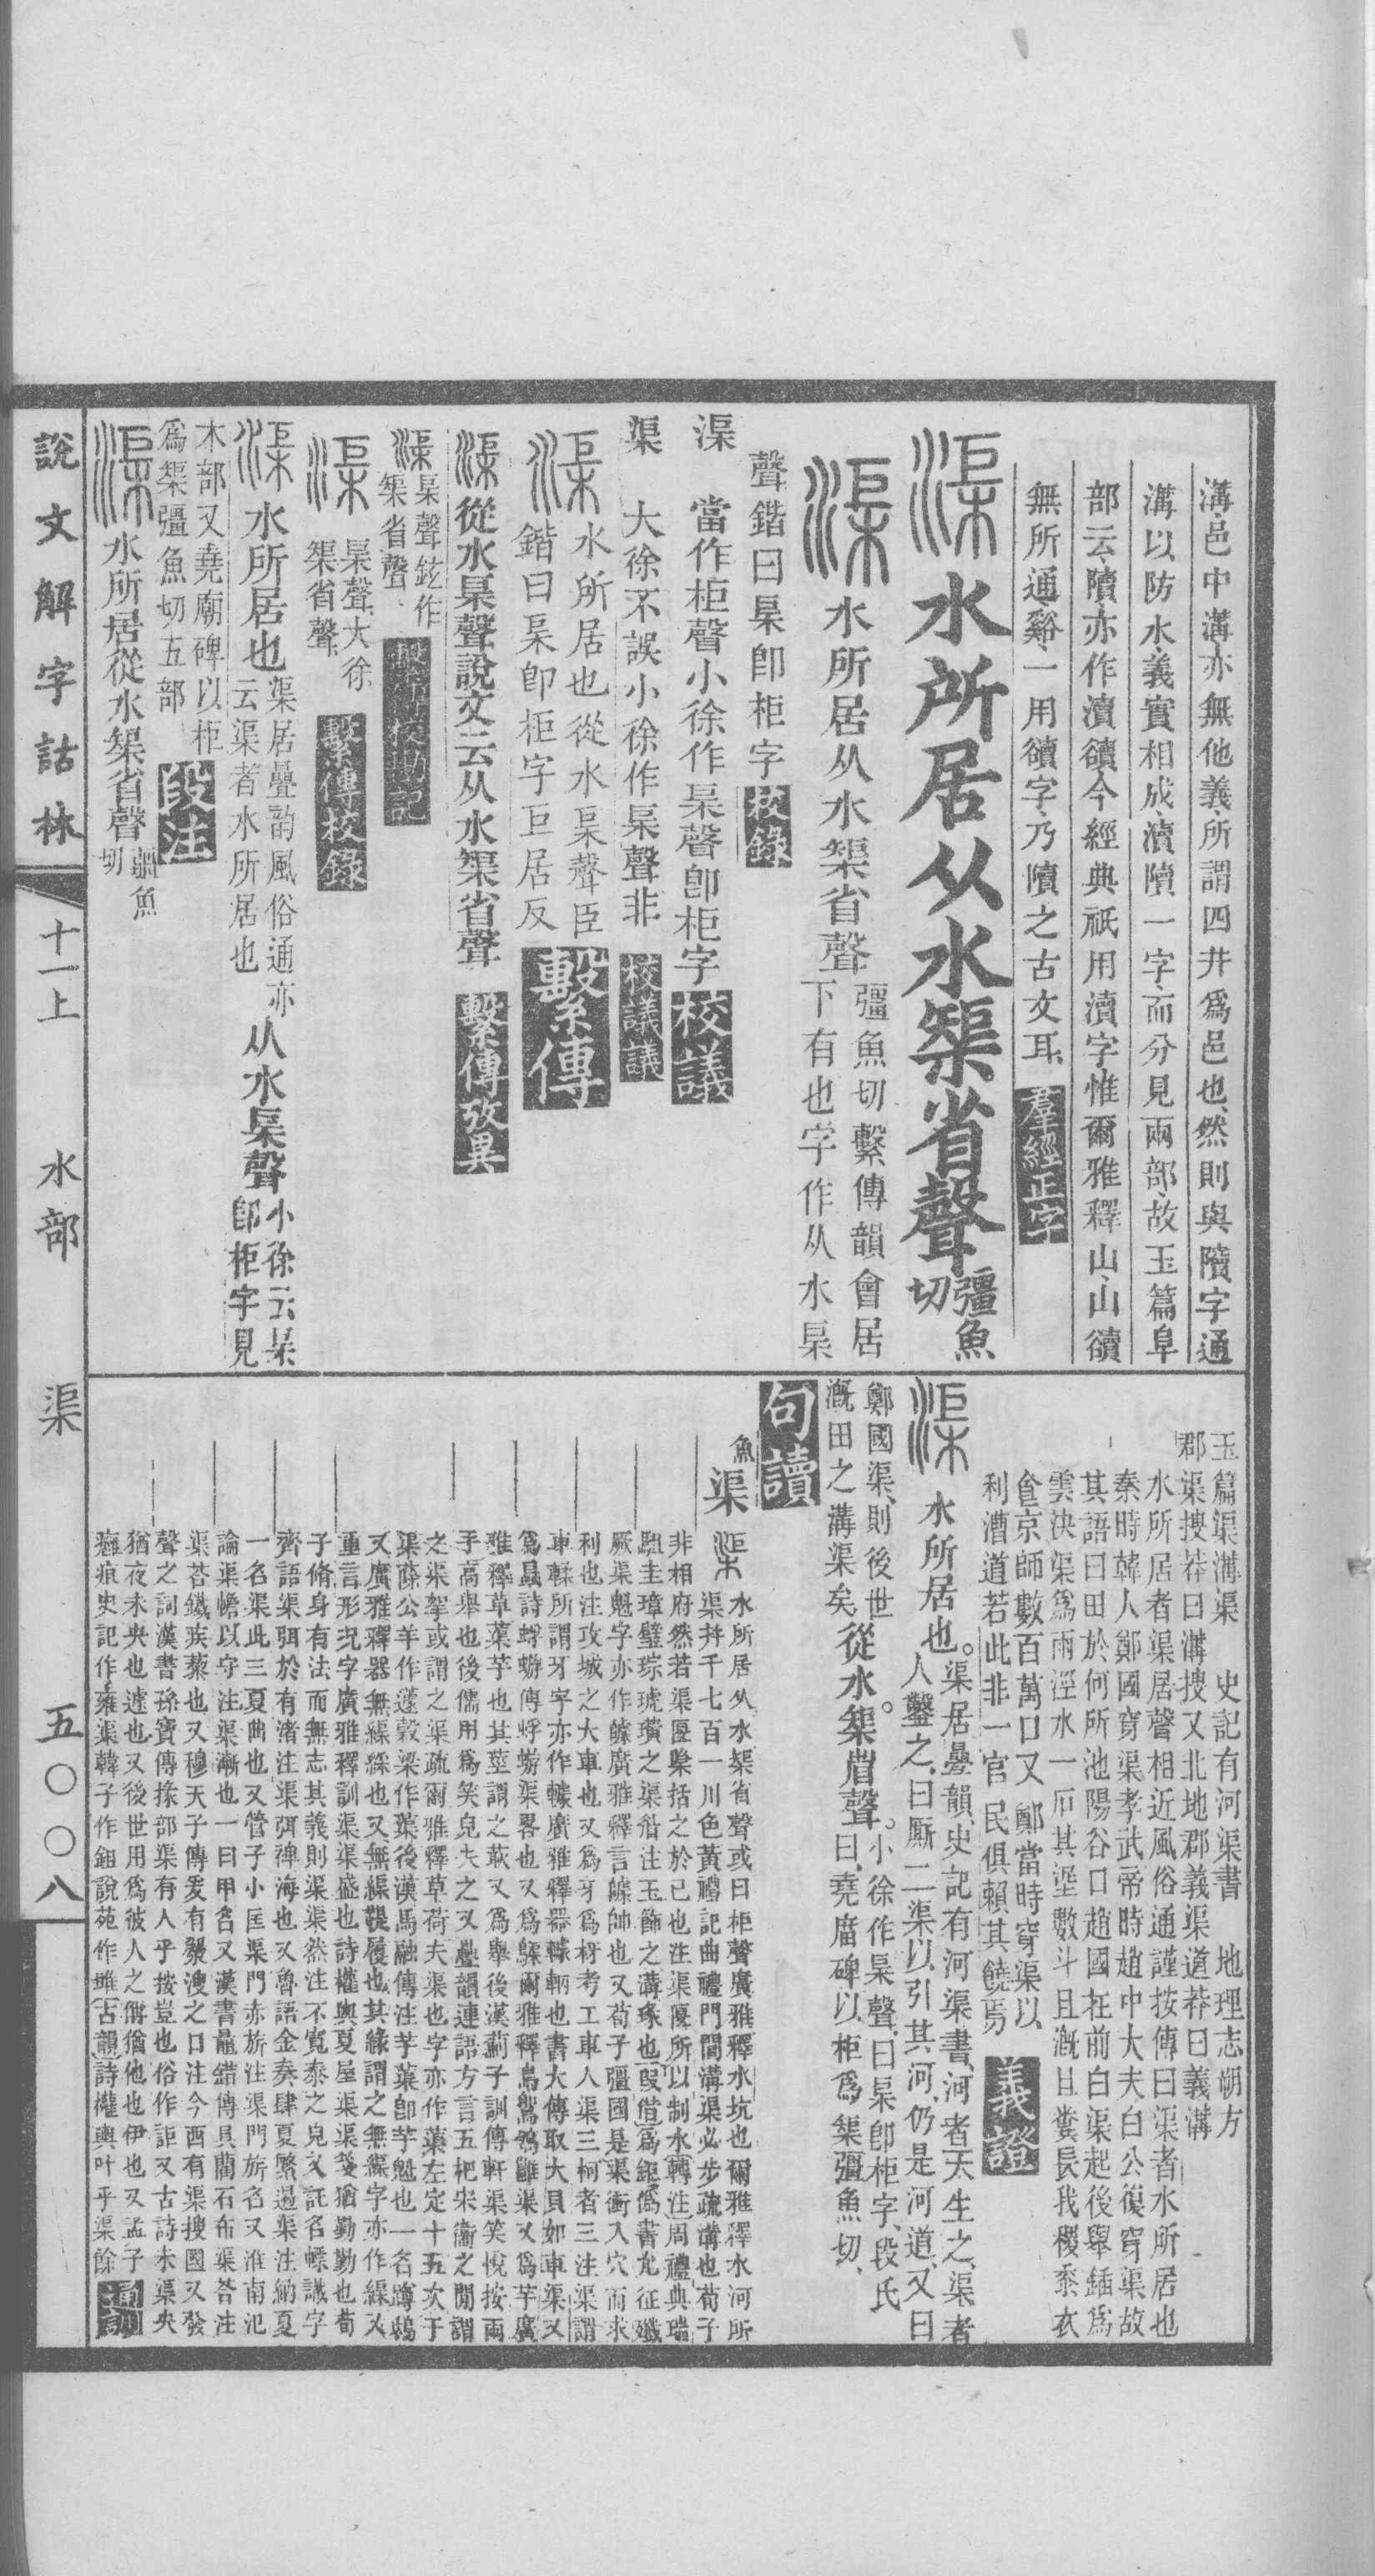 溝邑中溝亦無他義所謂四井爲邑也然則與隫字通
溝以防水義實相成瀆隫一字而分見兩部故玉篇阜
部云隫亦作瀆䜅今經典祇用瀆字惟爾雅釋山山䜅
無所通谿一用䜅字乃隫之古文耳羣經正字
渠 水所居从水榘省聲彊魚切
渠 水所居从水榘省聲彊魚切繫傳韻會居
下有也字作从水㮂
聲鍇曰㮂卽柜字校錄
渠 當作柜聲小徐作㮂聲卽柜字校議
渠 大徐不誤小徐作㮂聲非校議議
渠 水所居也從水㮂聲臣
鍇曰㮂卽柜字巨居反繫傳
渠 從水㮂聲說文云从水榘省聲繫傳攷異
渠 㮂聲鉉作
榘省聲繫傳校勘記
渠 㮂聲大徐
榘省聲繫傳校錄
渠 水所居也渠居疊韵風俗通亦
云渠者水所居也从水㮂聲小徐云㮂
卽柜字見
木部又堯廟碑以柜
爲榘彊魚切五部段注
渠 水所居從水榘省聲彊魚
切
玉篇渠溝渠 史記有河渠書 地理志朔方
郡渠搜莽曰溝搜又北地郡義渠道莽曰義溝
水所居者渠居聲相近風俗通謹按傳曰渠者水所居也
秦時韓人鄭國穿渠孝武帝時趙中大夫白公復穿渠故
其語曰田於何所池陽谷口趙國在前白渠起後舉鍤爲
雲決渠爲雨涇水一石其埿數斗且溉且糞長我稷黍衣
食京師數百萬口又鄭當時穿渠以
利漕道若此非一官民俱賴其饒焉義證
渠 水所居也。渠居疊韻、史記有河渠書、河者天生之、渠者
人鑿之、曰厮二渠以引其河、仍是河道、又曰
鄭國渠、則後世
溉田之溝渠矣從水榘省聲。小徐作㮂聲、曰㮂卽柜字、段氏
曰、堯廟碑以柜爲榘彊魚切、
句讀
魚
渠 水所居从水榘省聲或曰柜聲廣雅釋水坑也爾雅釋水河所
渠幷千七百一川色黃禮記曲禮門閭溝渠必步疏溝也荀子
非相府然若渠匽檃括之於己也注渠匽所以制水轉注周禮典瑞
駔圭璋璧琮琥璜之渠眉注玉飾之溝瑑也叚借爲鉅僞書允征殲
厥渠魁字亦作㯫廣雅釋言㯫帥也又荀子彊國是渠衝入穴而求
利也注攻城之大車也又爲牙爲枒考工車人渠三柯者三注渠謂
車輮所謂牙字亦作轅廣雅釋器輮輞也書大傳取大貝如車渠又
爲蟲詩蜉蝣傳蜉蝣渠畧也又爲䳔爾雅釋鳥鶺鴒雝渠又爲芋廣
雅釋草蕖芋也其莖謂之䔖又爲舉後漢薊子訓傳軒渠笑悅按兩
手高舉也後儒用爲笑皃失之又疊韻連語方言五杷宋衞之閒謂
之渠挐或謂之渠疏爾雅釋草荷夫渠也字亦作蕖左定十五次于
渠蒢公羊作蘧穀梁作蕖後漢馬融傳注芋蕖卽芋魁也一名蹲鴟
又廣雅釋器無緣絲也又無緣鞮履也其緣謂之無緣字亦作緣又
重言形況字廣雅釋訓渠渠盛也詩權輿夏屋渠渠箋猶勤勤也荀
子脩身有法而無志其義則渠渠然注不寬泰之皃又託名幖識字
齊語渠弭於有渚注渠弭裨海也又魯語金奏肆夏繁遏渠注納夏
一名渠此三夏曲也又管子小匡渠門赤旂注渠門旂名又淮南氾
論渠幨以守注渠漸也一曰甲名又漢書鼂錯傳具藺石布渠荅注
渠荅鐵疾藜也又穆天子傳爰有𤅊溲之口注今西有渠搜國又發
聲之詞漢書孫寶傳掾部渠有人乎按豈也俗作詎又古詩未渠央
猶夜未央也遽也又後世用爲彼人之偁猶他也伊也又孟子
癰疽史記作雍渠韓子作鉏說苑作雎古韻詩權輿叶乎渠餘通訓
說文解字詁林
十一上
水部 渠
五〇〇八